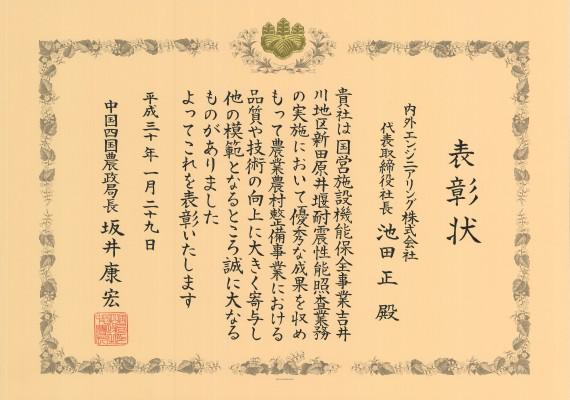 表彰状
内外エンジニアリング株式会社
代表取締役社長 池田正 殿
貴社は国営施設機能保全事業吉井
川地区新田原井堰耐震性能照査業務
の実施において優秀な成果を収め
もって農業農村整備事業における
品質や技術の向上に大きく寄与し
他の模範となるところ誠に大なる
ものがありました
よってこれを表彰いたします
平成三十年一月二十九日
中国四国農政局長 坂井康宏